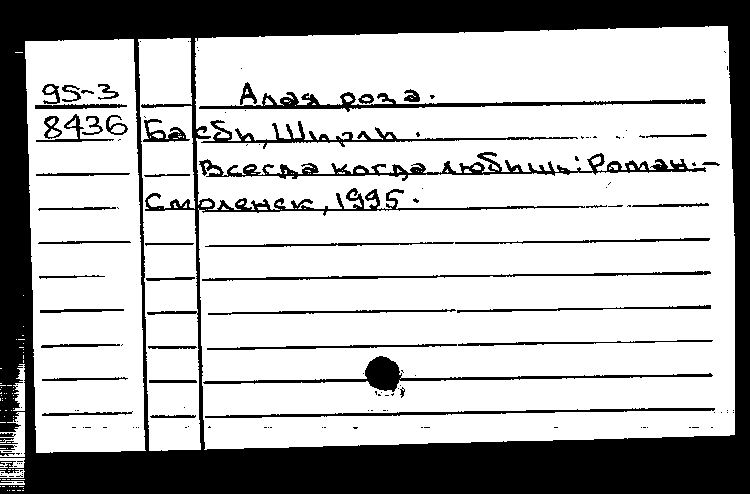 95-3 Алая роза.
8436 Басби, Ширли.
Всегда когда любишь: Роман.-
Смоленск, 1995.